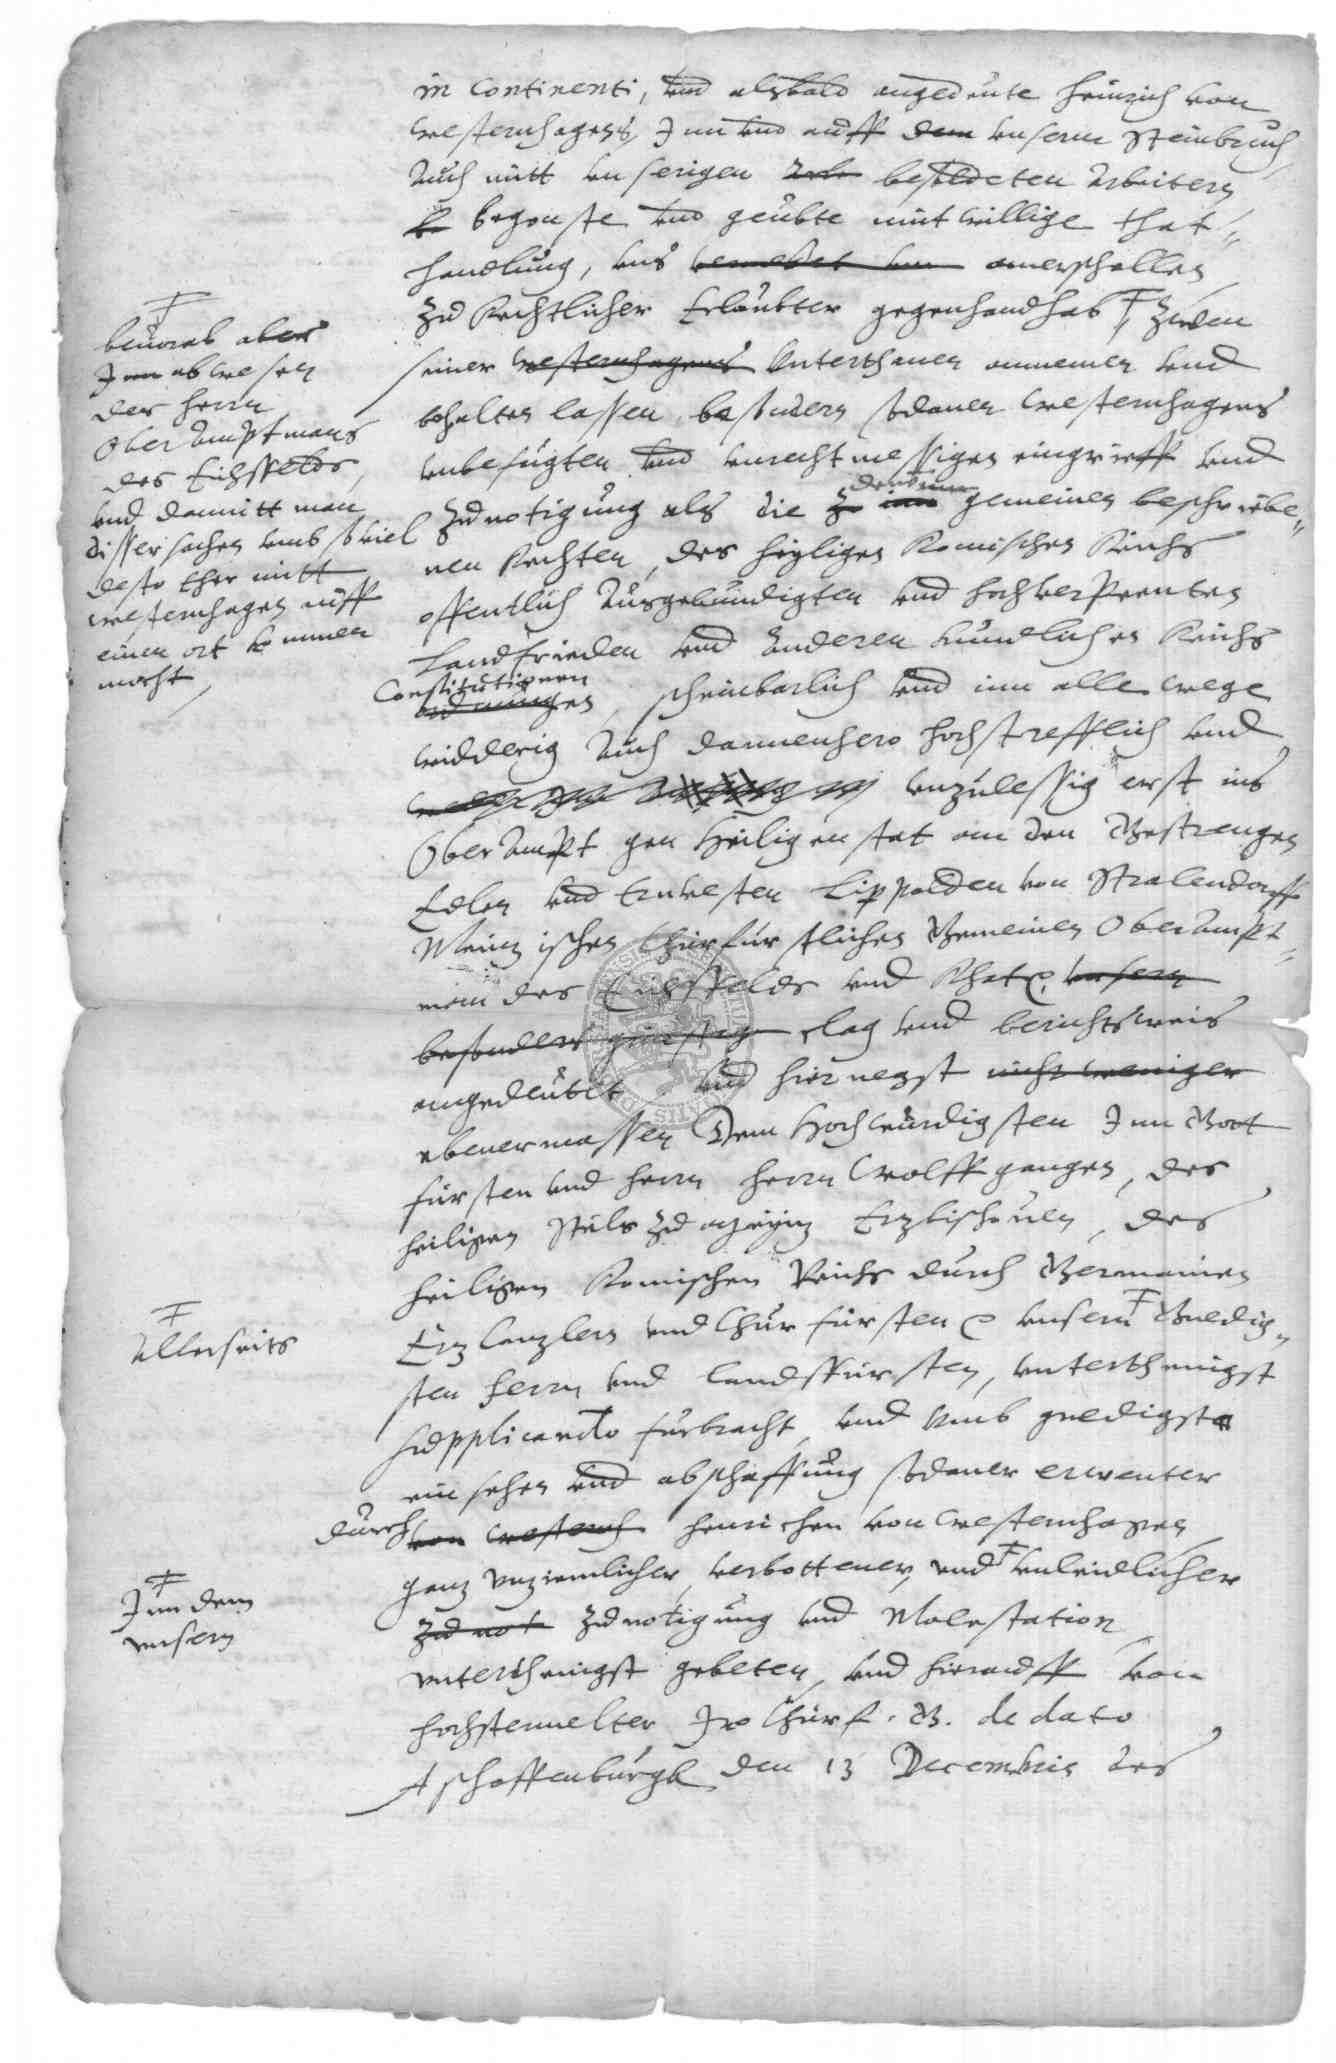 in continenti, vnd alsbald angedeute Heinrich von
Westernhagens, Inn vnd auff dem vnserm Steinbruch
Auch mitt vnserigen Arb besoldeten Arbeitern
begonste vnd geubte mutwillige that=
handlung, vns
zu Rechtlicher Erlaubter gegenhandhab Ŧ, zween
seiner Westernhagens Vnterthanen annemen vnd
behalten lassen, besondern sodanen Westernhagens
vnbefugten vnd vnrechtmessigen eingrieff vnd
zunotigung als die zu inn gemeinen beschriebe=
nen Rechten, des heyligen Romischen Reichs
offentlich Ausgekundigten vnd hochverpeenten
Landfrieden vnd Anderen kundlichen Reichs
Constitutionen
ordnungen, scheinbarlich vnd inn alle wege
widderig Auch dannenhero hochstrefflich vnd
vnzulessig erst ins
Ober Ampt gen Heiligenstat an den Gestrengen
Edlen vnd Ernuesten Lippolden von Stralendorff
Meinzischen Churfurstlichen Gemeinen Ober Ampt=
man des Eichsfelds vnd Rhat vnsern
besonders gunstig clag vnd berichtsweis
angedeutet vnd hiernegst nicht weniger
ebenermassen Dem Hochwurdigsten Inn Gott
fursten vnd herrn herrn Wolffgangen, des
heiligen Stuls zu Meynz Erzbischouen, des
heiligen Romischen Reichs durch Germanien
Erzcanzlern vnd Churfursten vnserm Ŧ Gnedig=
sten herrn vnd landsfursten, vnterthenigst
supplicando furbracht, vnd vmb gnedigste
ein sehen vnd abschaffung sodaner erwenter
durch von Westernh Heinrichen von Westernhagen
ganz vnziemlicher, verbottener, vnd Ŧ vnleidlicher
zu not zunotigung vnd Molestation
vnterthenigst gebeten, vnd hierauff von
hochstermelter Iro Churf. G. de dato
Aschaffenburgk den 13 Decembris des
Ŧ
beuorab aber
Inn abwesen
des herrn
Ober Amptmans
des Eichsfelds,
vnd damitt man
disser sachen vmb so viel
desto eher mitt
Westernhagen auff
einen ort kommen
mocht,
Ŧ
Allerseits
Ŧ
Inn dem
vnsern